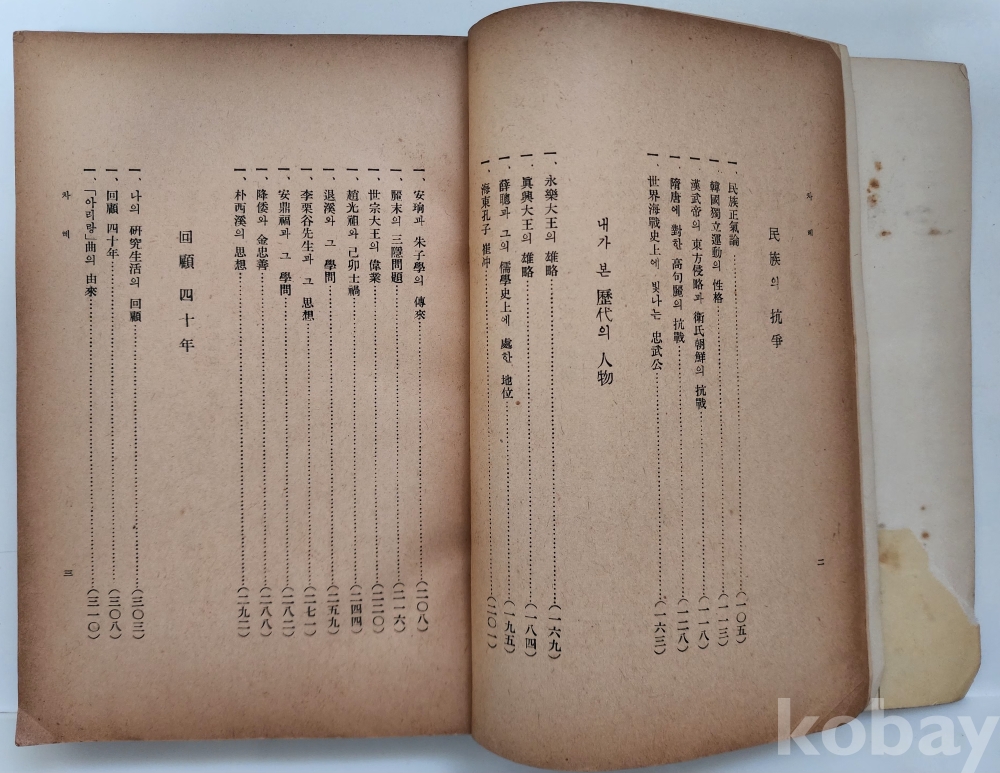 차 례
民族의 抗爭
一、 民族正氣論 (一〇五)
一、 韓國獨立運動의 性格 (一一三)
一、 漢武帝의 東方侵略과 衛氏朝鮮의 抗戰 (一一八)
一、 隋唐에 對한 高句麗의 抗戰 (一二八)
一、 世界海戰史上에 빛나는 忠武公 (一六三)
내가 본 歷代의 人物
一、 永樂大王의 雄略 (一六九)
一、 眞興大王의 雄略 (一八四)
一、 薛聰과 그의 儒學史上에 處한 地位 (一九五)
一、 海東孔子 崔冲 (二〇一)
二
차 례
一、 安珦과 朱子學의 傳來 (二〇八)
一、 麗末의 三隱問題 (二一六)
一、 世宗大王의 偉業 (二二〇)
一、 趙光祖와 己卯士禍 (二四四)
一、 退溪와 그 學問 (二五九)
一、 李栗谷先生과 그 思想 (二七一)
一、 安鼎福과 그 學問 (二八二)
一、 降倭와 金忠善 (二八八)
一、 朴西溪의 思想 (二九二)
回顧 四十年
一、 나의 研究生活의 回顧 (三〇三)
一、 回顧 四十年 (三〇八)
一、 「아리랑」曲의 由來 (三一〇)
三
kobay